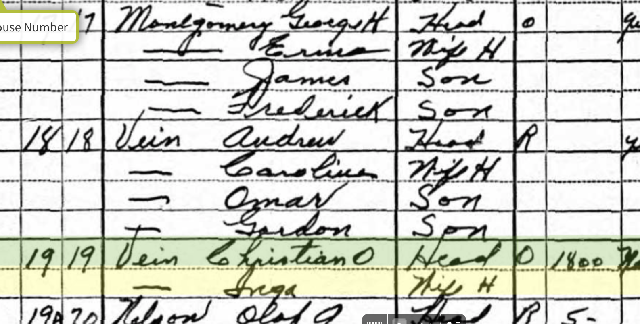 ouse Number 7 Montgomery George H Head O
— Erma Wife H
— James Son
— Frederick Son
18 18 Vein Andrew Head R
— Caroline Wife H
— Omar Son
— Gordon Son
19 19 Vein Christian O Head O 1800 No
— Inga Wife H
19A 20 Nelson Olaf Head R 5-